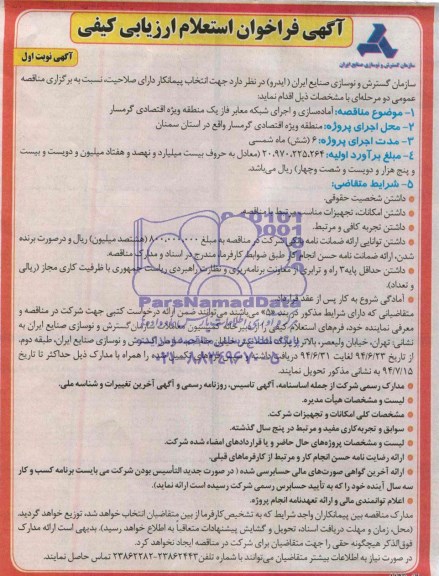 آگهی فراخوان استعلام ارزیابی کیفی
سازمان گسترش و نوسازی صنایع ایران
آگهی نوبت اول
سازمان گسترش و نوسازی صنایع ایران (ایدرو) در نظر دارد جهت انتخاب پیمانکار دارای صلاحیت، نسبت به برگزاری مناقصه
عمومی دو مرحله‌ای با مشخصات ذیل اقدام نماید:
۱- موضوع مناقصه: آماده‌سازی و اجرای شبکه معابر فاز یک منطقه ویژه اقتصادی گرمسار
۲- محل اجرای پروژه: منطقه ویژه اقتصادی گرمسار واقع در استان سمنان
۳- مدت اجرای پروژه: ۶ (شش) ماه شمسی
۴- مبلغ برآورد اولیه: ۲۰،۹۷۰،۲۲۵،۲۶۴ (معادل به حروف بیست میلیارد و نهصد و هفتاد میلیون و دویست و بیست
و پنج هزار و دویست و شصت وچهار) ریال می‌باشد.
۵- شرایط متقاضی:
داشتن شخصیت حقوقی.
داشتن امکانات، تجهیزات مناسب و مرتبط با مناقصه.
داشتن تجربه کافی و مرتبط.
داشتن توانایی ارائه ضمانت نامه بانکی شرکت در مناقصه به مبلغ ۸۰۰،۰۰۰،۰۰۰ (هشتصد میلیون) ریال و درصورت برنده
شدن، ارائه ضمانت نامه حسن انجام کار طبق ضوابط کارفرما مندرج در اسناد و مدارک مناقصه.
داشتن حداقل پایه ۳ راه و ترابری از معاونت برنامه‌ریزی و نظارت راهبردی ریاست جمهوری با ظرفیت کاری مجاز (ریالی
و تعداد).
آمادگی شروع به کار پس از عقد قرارداد.
متقاضیانی که دارای شرایط مذکور در بند «۵» می‌باشند می‌توانند ضمن ارائه درخواست کتبی جهت شرکت در مناقصه و
معرفی نماینده خود، فرم‌های استعلام کیفی را از دبیرخانه کمیسیون معاملات سازمان گسترش و نوسازی صنایع ایران به
نشانی: تهران، خیابان ولیعصر، بالاتر از پارک سازمان گسترش و نوسازی صنایع ایران، طبقه دوم،
از تاریخ ۹۴/۶/۲۳ لغایت ۹۴/۶/۳۱ دریافت را همراه با مدارک ذیل حداکثر تا تاریخ
۹۴/۷/۱۵ به نشانی مذکور تحویل نمایند.
مدارک رسمی شرکت از جمله اساسنامه، آگهی تاسیس، روزنامه رسمی و آگهی آخرین تغییرات و شناسه ملی.
لیست و مشخصات هیأت مدیره.
مشخصات کلی امکانات و تجهیزات شرکت.
سوابق و تجربه‌کاری مفید و مرتبط در پنج سال گذشته.
لیست و مشخصات پروژه‌های حال حاضر و یا قراردادهای امضاء شده شرکت.
ارائه رضایت نامه حسن انجام کار و مرتبط از کارفرماهای قبلی.
ارائه آخرین گواهی صورت‌های مالی حسابرسی شده ( در صورت جدید التأسیس بودن شرکت می بایست برنامه کسب و کار
سه سال آینده خود را که به تأیید حسابرس رسمی شرکت رسیده است ارائه نماید).
اعلام توانمندی مالی و ارائه تعهدنامه انجام پروژه.
مدارک مناقصه بین پیمانکاران واجد شرایط که به تشخیص کارفرما از بین متقاضیان انتخاب خواهد شد، توزیع خواهد گردید.
(محل، زمان و مهلت دریافت اسناد، تحویل و گشایش پیشنهادات متعاقباً به اطلاع خواهد رسید). بدیهی است ارائه مدارک
فوق‌الذکر هیچگونه حقی را جهت متقاضیان برای شرکت در مناقصه ایجاد نخواهد کرد.
در صورت نیاز به اطلاعات بیشتر متقاضیان می‌توانند با شماره تلفن ۲۳۸۶۲۴۴۳-۲۳۸۶۲۲۸۲ تماس حاصل نمایند.
ParsNamadData
۰۲۱-۸۸۳۴۹۶۷۰-۵